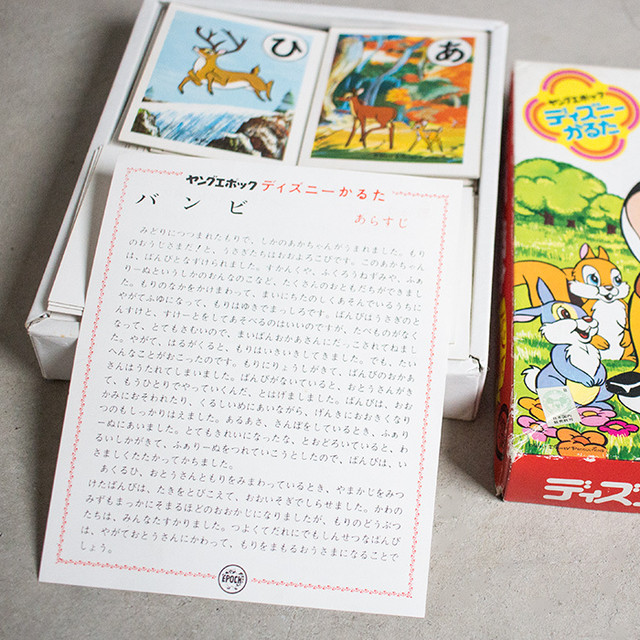 ひ
あ
ヤングエポック
ディズニー
かるた
ヤングエポック ディズニーかるた
バンビ
あらすじ
みどりにつつまれたもりで、しかのあかちゃんがうまれました。もり
のおうじさまだぞと、うさぎたちはおおよろこびです。このあかちゃん
は、ばんびとなずけられました。すかんくや、ふくろうねずみや、ふぁ
りーぬというしかのおんなのこなど、たくさんのおともだちができまし
た。もりのなかをかけまわって、まいにちたのしくあそんでいるうちに
やがてふゆになって、もりはゆきでまっしろです。ばんびはうさぎのと
んすけと、すけーとをしてあそべるのはいいのですが、たべものがなく
なって、とてもさむいので、まいばんおかあさんにだっこされてねまし
た。やがて、はるがくると、もりはいきいきしてきました。でも、たい
へんなことがおこったのです。もりにりょうしがきて、ばんびのおかあ
さんはうたれてしまいました。ばんびがないていると、おとうさんがき
て、もうひとりでやっていくんだ、とはげましました。ばんびは、おお
かみにおそわれたり、くるしいめにあいながら、げんきにおおきくなり
つのもしっかりはえました。あるあさ、さんぽをしているとき、ふぁり
ーぬにあいました。とてもきれいになったな、とおどろいていると、わ
るいしかがきて、ふぁりーぬをつれていこうとしたので、ばんびは、い
さましくたたかってかちました。
あくるひ、おとうさんともりをみまわっているとき、やまかじをみつ
けたばんびは、たきをとびこえて、おおいそぎでしらせました。かわの
みずもまっかにそまるほどのおおかじになりましたが、もりのどうぶつ
たちは、みんなたすかりました。つよくてだれにでもしんせつなばんび
は、やがておとうさんにかわって、もりをまもるおうさまになることで
しょう。
EPOCH
ディズニ